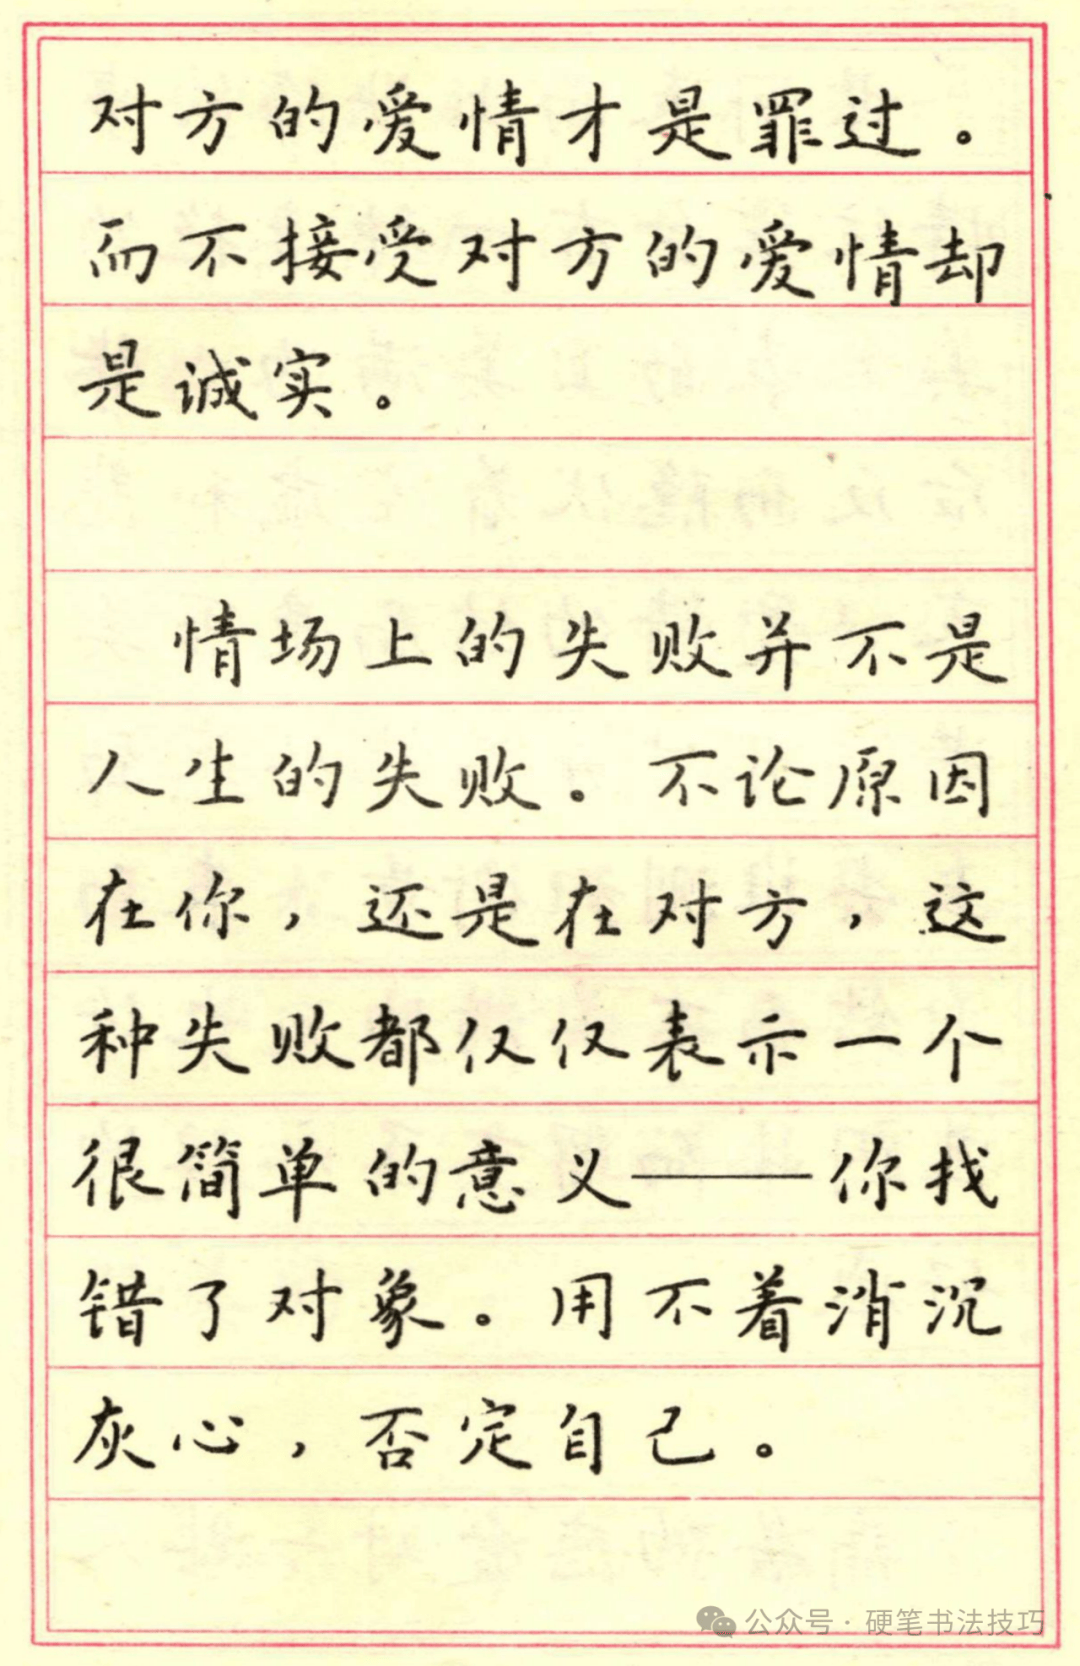 对方的爱情才是罪过。
而不接受对方的爱情却
是诚实。
情场上的失败并不是
人生的失败。不论原因
在你，还是在对方，这
种失败都仅仅表示一个
很简单的意义——你找
错了对象。用不着消沉
灰心，否定自己。
公众号·硬笔书法技巧